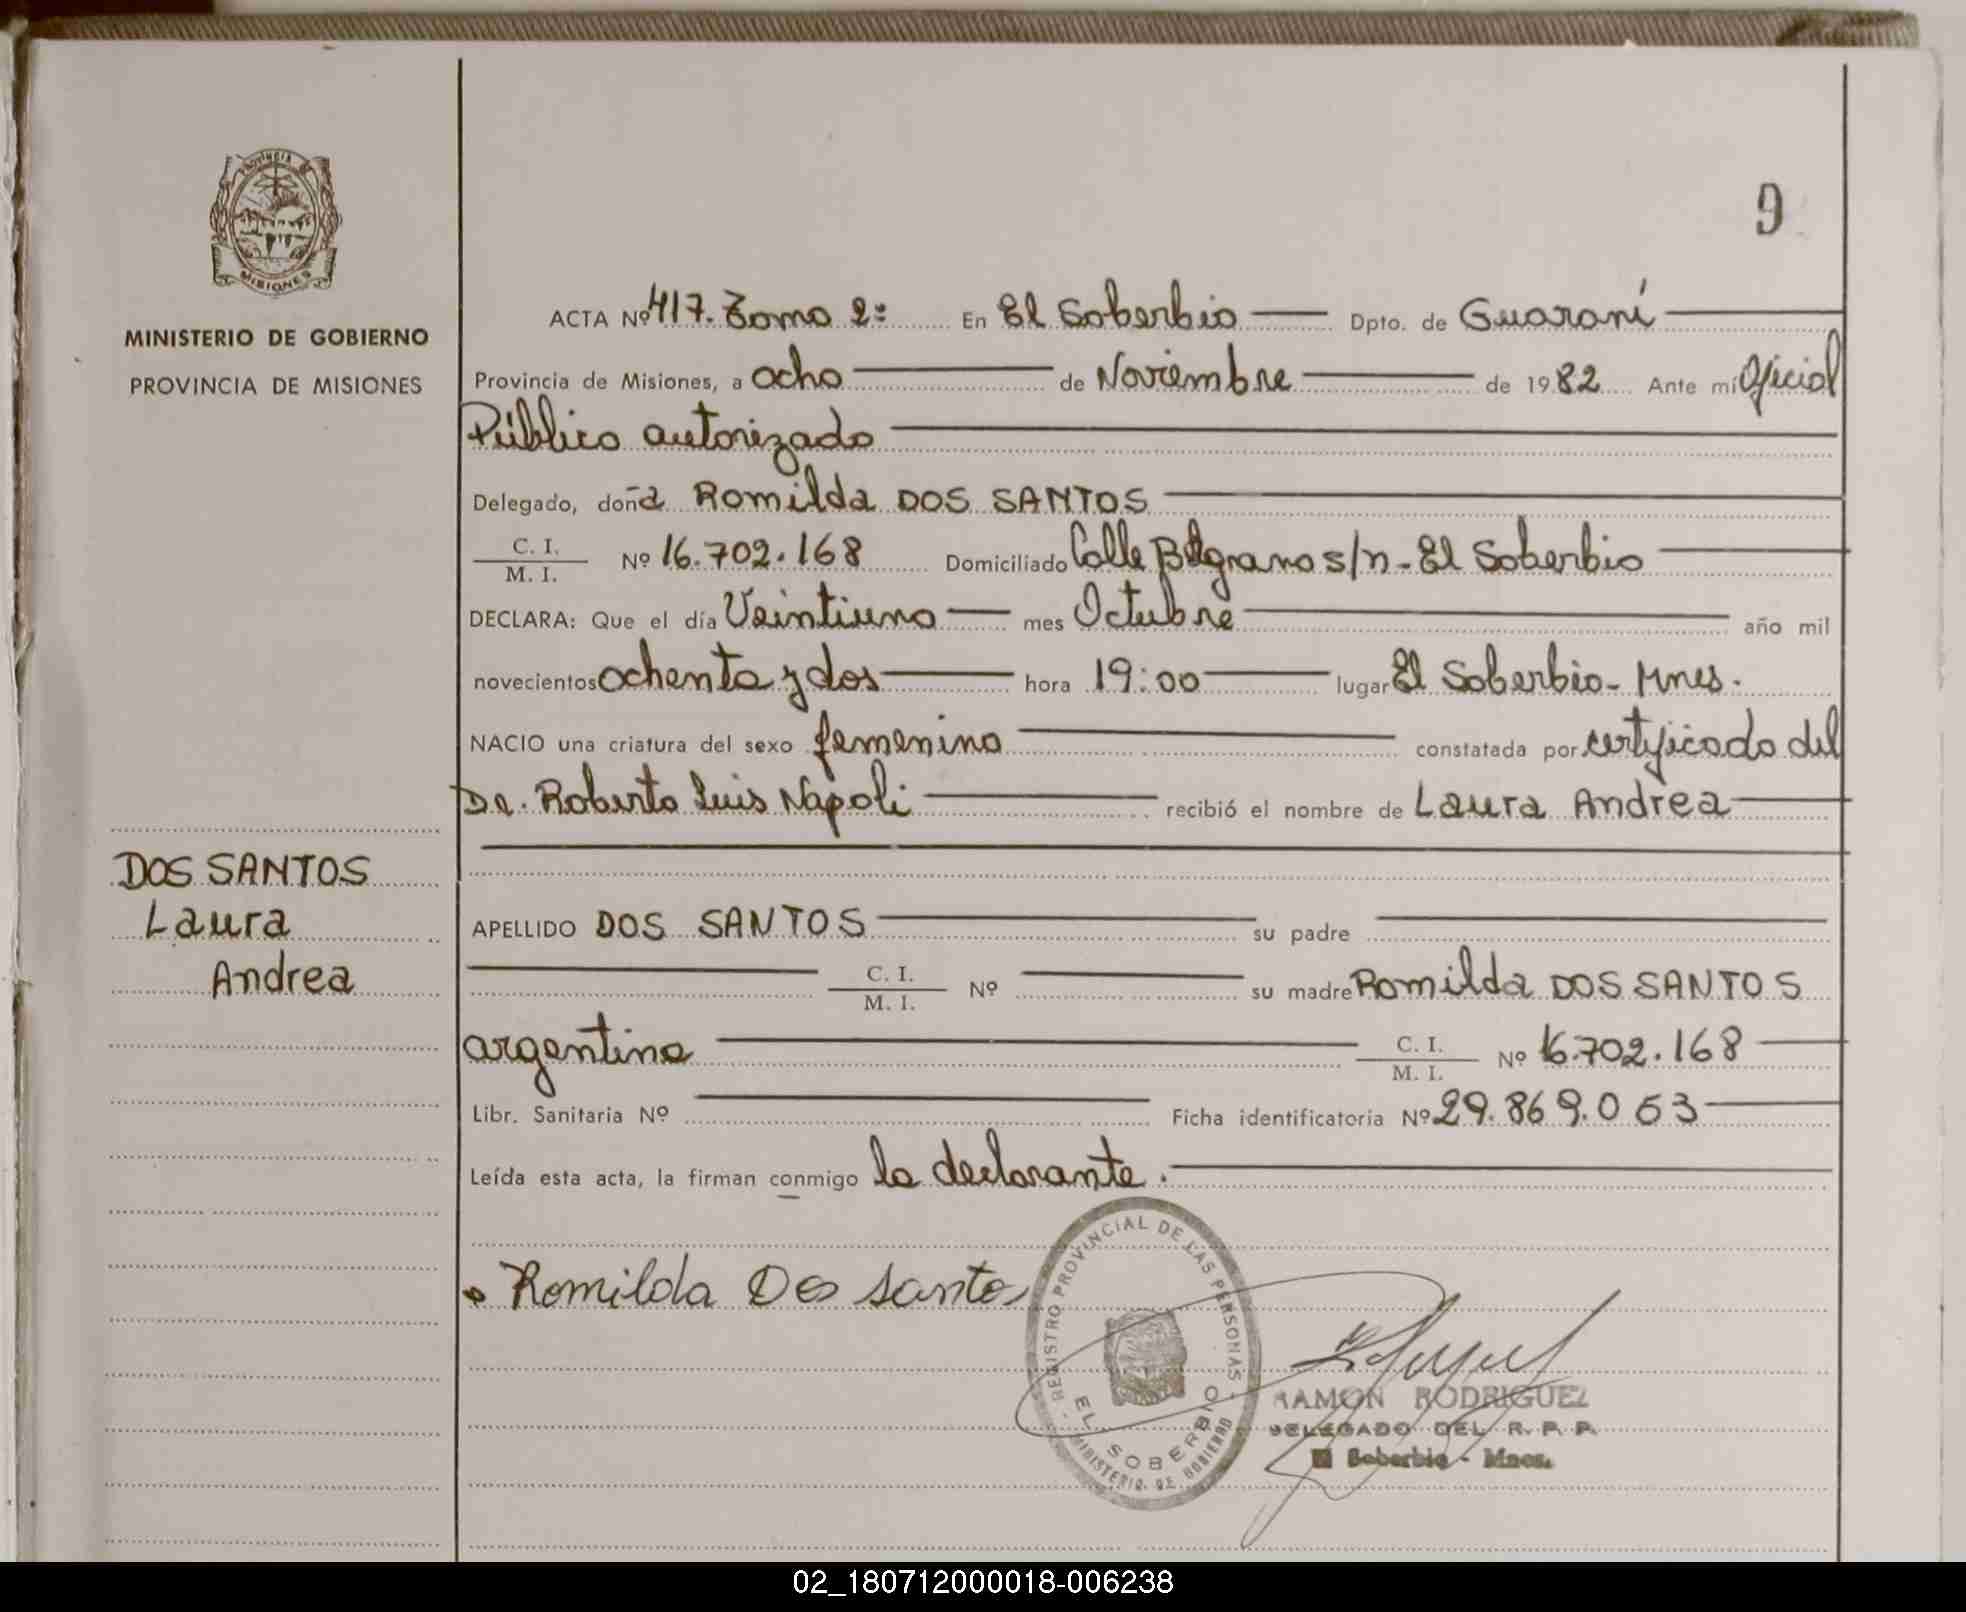 PROVINCIA DE
MISIONES
MINISTERIO DE GOBIERNO
PROVINCIA DE MISIONES
DOS SANTOS
Laura
Andrea
9
ACTA Nº 417. Tomo 2º En El Soberbio Dpto. de Guaraní
Provincia de Misiones, a ocho de Noviembre de 1982 Ante mí Oficial
Público autorizado
Delegado, doña Romilda DOS SANTOS
C. I.
M. I. Nº 16.702.168 Domiciliado Calle Belgrano s/n - El Soberbio
DECLARA: Que el día Veintiuno mes Octubre año mil
novecientos ochenta y dos hora 19:00 lugar El Soberbio - Mnes.
NACIO una criatura del sexo femenino constatada por certificado del
Dr. Roberto Luis Napoli recibió el nombre de Laura Andrea
APELLIDO DOS SANTOS su padre
C. I.
M. I. Nº su madre Romilda DOS SANTOS
argentina C. I.
M. I. Nº 16.702.168
Libr. Sanitaria Nº Ficha identificatoria Nº 29.869.053
Leída esta acta, la firman conmigo la declarante.
Romilda Dos Santos
REGISTRO PROVINCIAL DE LAS PERSONAS
EL SOBERBIO
MINISTERIO DE GOBIERNO
RAMON RODRIGUEZ
DELEGADO DEL R. P. P.
El Soberbio - Mnes.
02_180712000018-006238